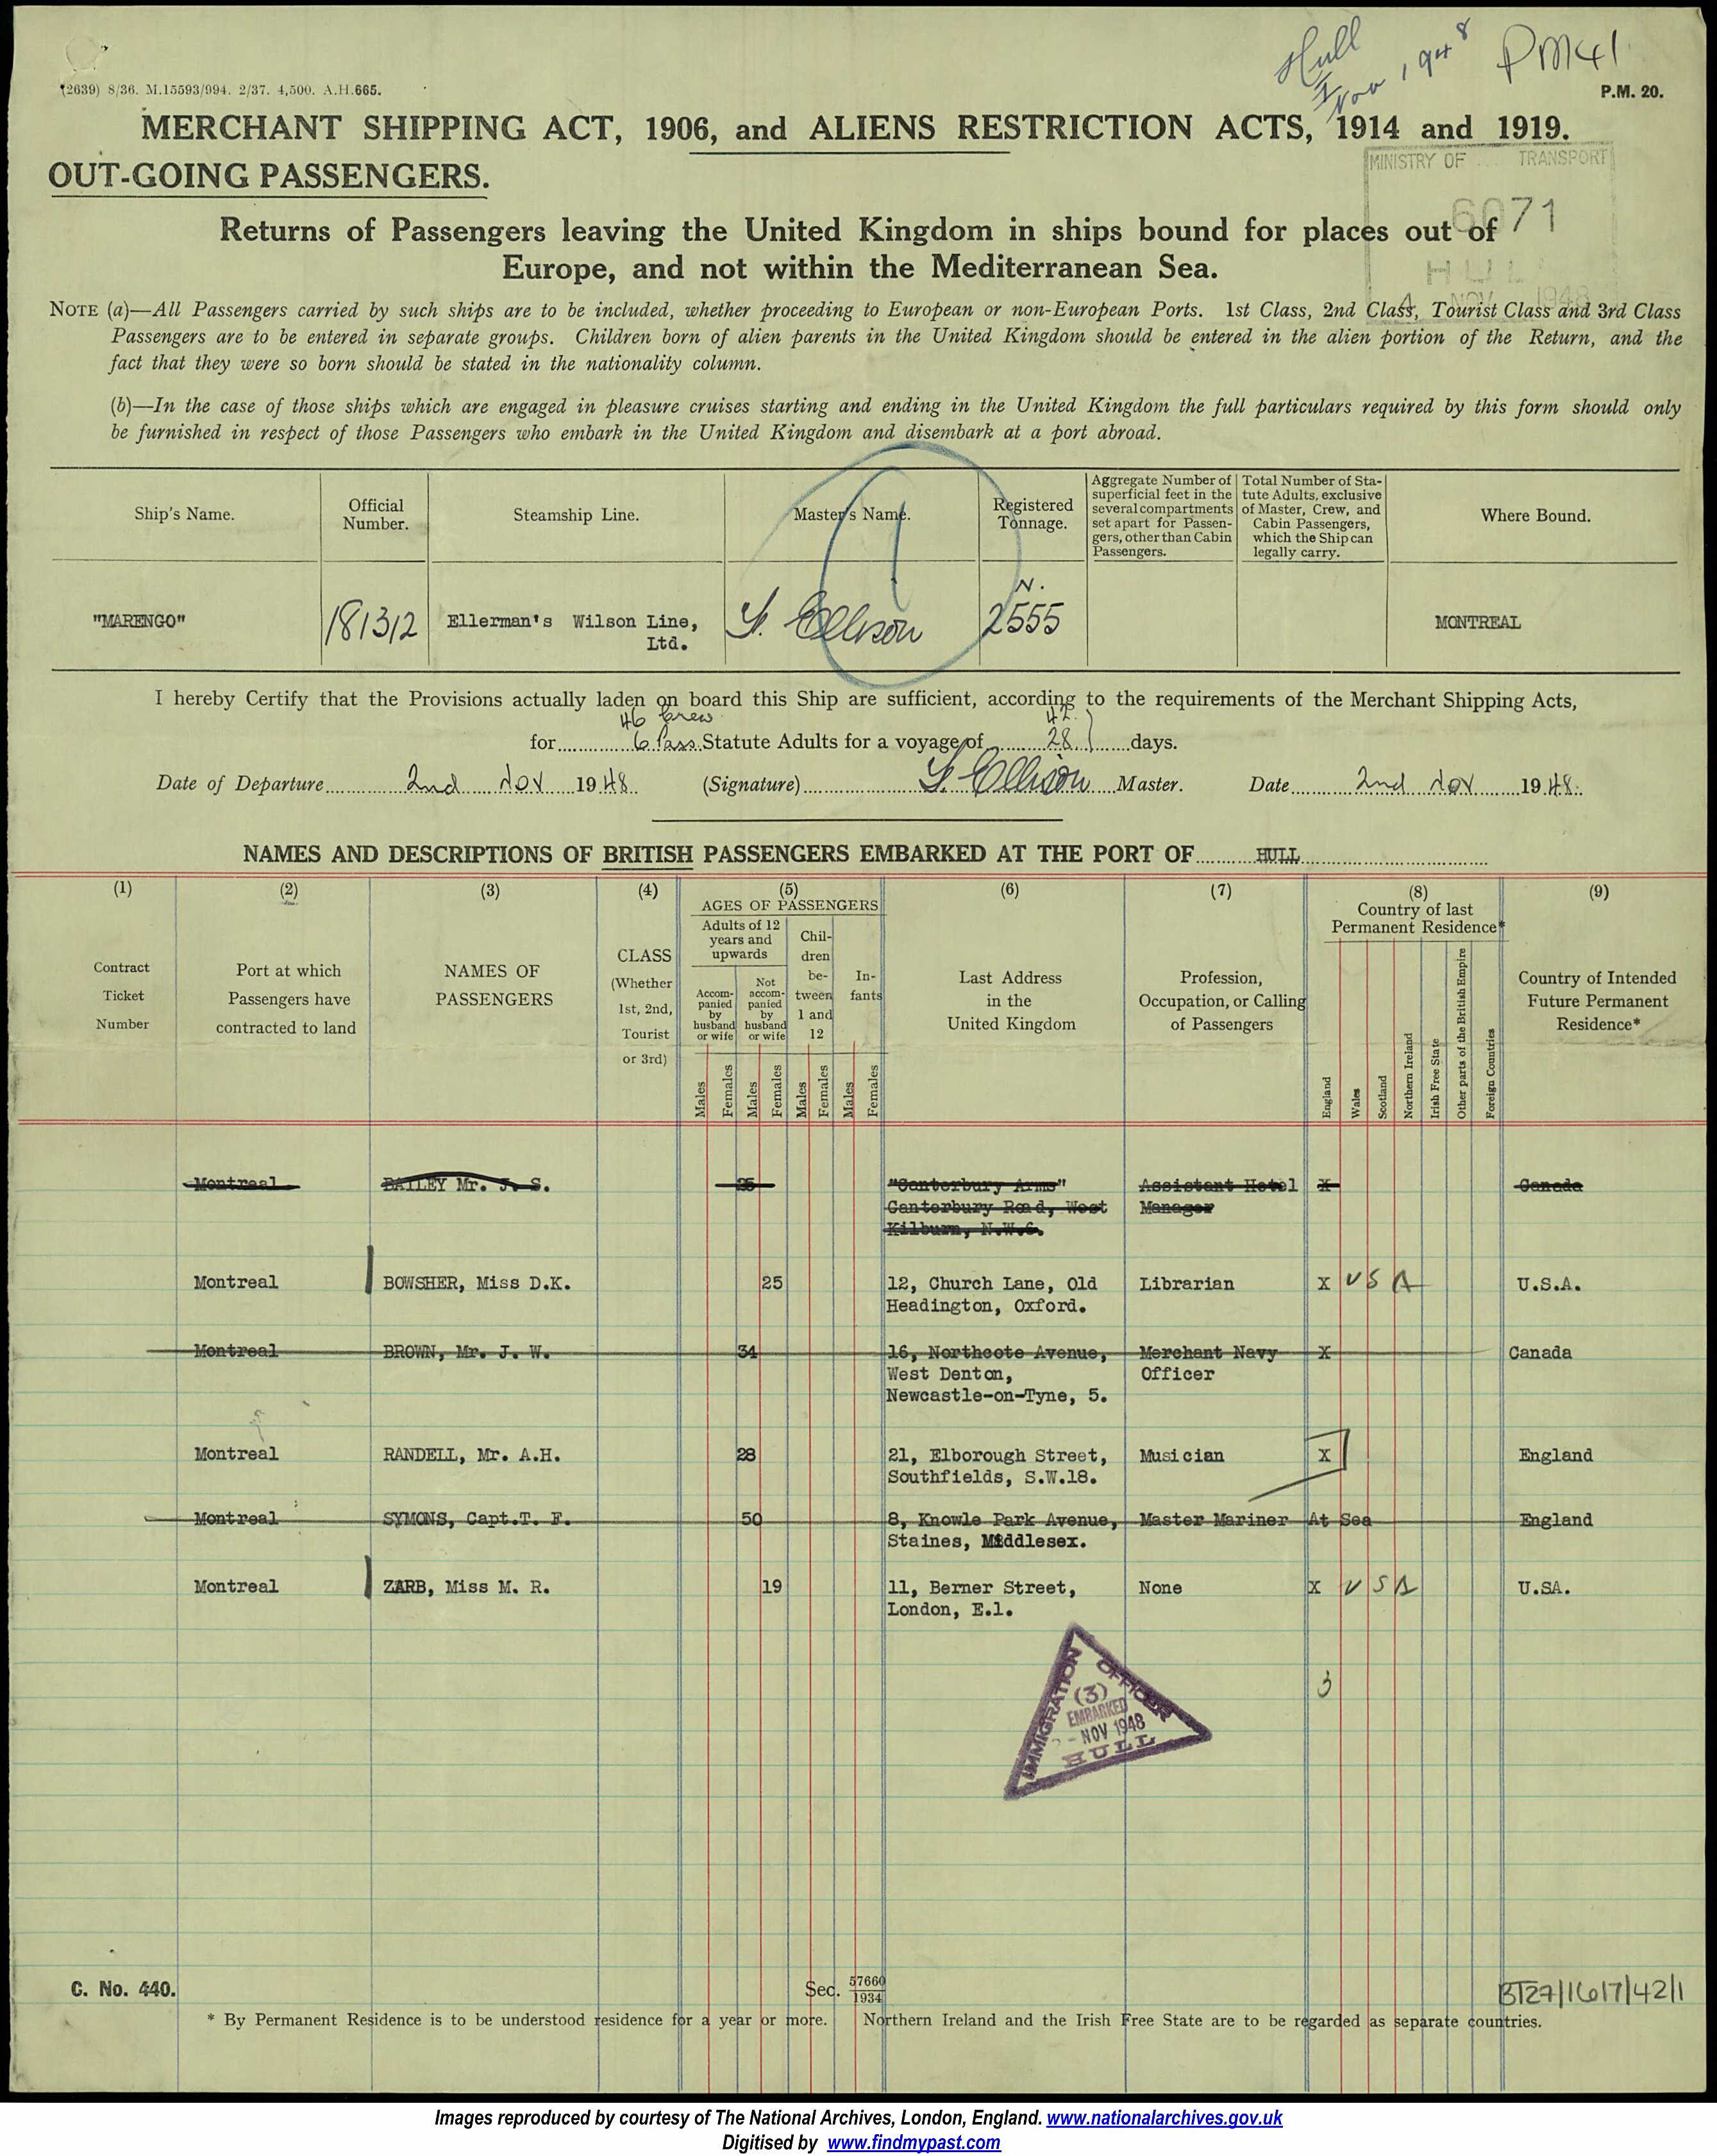 Hull
1 Nov 1948
PM41
(2639) 8/36. M.15593/994. 2/37. 4,500. A.H.665.
P.M. 20.
MERCHANT SHIPPING ACT, 1906, and ALIENS RESTRICTION ACTS, 1914 and 1919.
OUT-GOING PASSENGERS.
MINISTRY OF TRANSPORT
6071
HULL
4 NOV 1948
Returns of Passengers leaving the United Kingdom in ships bound for places out of
Europe, and not within the Mediterranean Sea.
NOTE (a)—All Passengers carried by such ships are to be included, whether proceeding to European or non-European Ports. 1st Class, 2nd Class, Tourist Class and 3rd Class
Passengers are to be entered in separate groups. Children born of alien parents in the United Kingdom should be entered in the alien portion of the Return, and the
fact that they were so born should be stated in the nationality column.
(b)—In the case of those ships which are engaged in pleasure cruises starting and ending in the United Kingdom the full particulars required by this form should only
be furnished in respect of those Passengers who embark in the United Kingdom and disembark at a port abroad.
Ship's Name.
Official
Number.
Steamship Line.
Master's Name.
Registered
Tonnage.
Aggregate Number of
superficial feet in the
several compartments
set apart for Passen-
gers, other than Cabin
Passengers.
Total Number of Sta-
tute Adults, exclusive
of Master, Crew, and
Cabin Passengers,
which the Ship can
legally carry.
Where Bound.
"MARENGO"
181312
Ellerman's Wilson Line,
Ltd.
Ellison
N.
2555
MONTREAL
I hereby Certify that the Provisions actually laden on board this Ship are sufficient, according to the requirements of the Merchant Shipping Acts,
46 Crew 42
for 6 Pass. Statute Adults for a voyage of 28 days.
Date of Departure 2nd Nov 1948. (Signature) Ellison Master. Date 2nd Nov 1948.
NAMES AND DESCRIPTIONS OF BRITISH PASSENGERS EMBARKED AT THE PORT OF HULL
(1)
Contract
Ticket
Number
(2)
Port at which
Passengers have
contracted to land
(3)
NAMES OF
PASSENGERS
(4)
CLASS
(Whether
1st, 2nd,
Tourist
or 3rd)
(5)
AGES OF PASSENGERS
Adults of 12
years and
upwards
Accom-
panied
by
husband
or wife
Not
accom-
panied
by
husband
or wife
Chil-
dren
be-
tween
1 and
12
In-
fants
Males
Females
Males
Females
Males
Females
Males
Females
(6)
Last Address
in the
United Kingdom
(7)
Profession,
Occupation, or Calling
of Passengers
(8)
Country of last
Permanent Residence*
England
Wales
Scotland
Northern Ireland
Irish Free State
Other parts of the British Empire
Foreign Countries
(9)
Country of Intended
Future Permanent
Residence*
Montreal BAILEY Mr. J. S. "Canterbury Arms" Assistant Hotel X Canada
Canterbury Road, West Manager
Kilburn, N.W.6.
Montreal BOWSHER, Miss D.K. 25 12, Church Lane, Old Librarian X USA U.S.A.
Headington, Oxford.
Montreal BROWN, Mr. J. W. 34 16, Northcote Avenue, Merchant Navy X Canada
West Denton, Officer
Newcastle-on-Tyne, 5.
Montreal RANDELL, Mr. A.H. 28 21, Elborough Street, Musician X England
Southfields, S.W.18.
Montreal SYMONS, Capt.T. F. 50 8, Knowle Park Avenue, Master Mariner At Sea England
Staines, Middlesex.
Montreal ZARB, Miss M. R. 19 11, Berner Street, None X USA U.SA.
London, E.1.
3
IMMIGRATION OFFICER
(3)
EMBARKED
- NOV 1948
HULL
C. No. 440.
Sec. 57660
1934
BT27/1617/42/1
* By Permanent Residence is to be understood residence for a year or more. Northern Ireland and the Irish Free State are to be regarded as separate countries.
Images reproduced by courtesy of The National Archives, London, England. www.nationalarchives.gov.uk
Digitised by www.findmypast.com